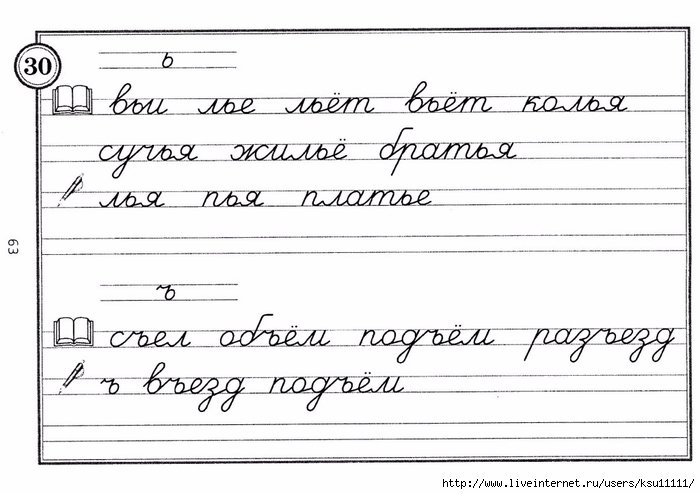 30
ь
вьи лье льёт вьёт колья
сучья жильё братья
лья пья платье
63
ъ
съел объём подъём разъезд
ъ въезд подъём
http://www.liveinternet.ru/users/ksu11111/